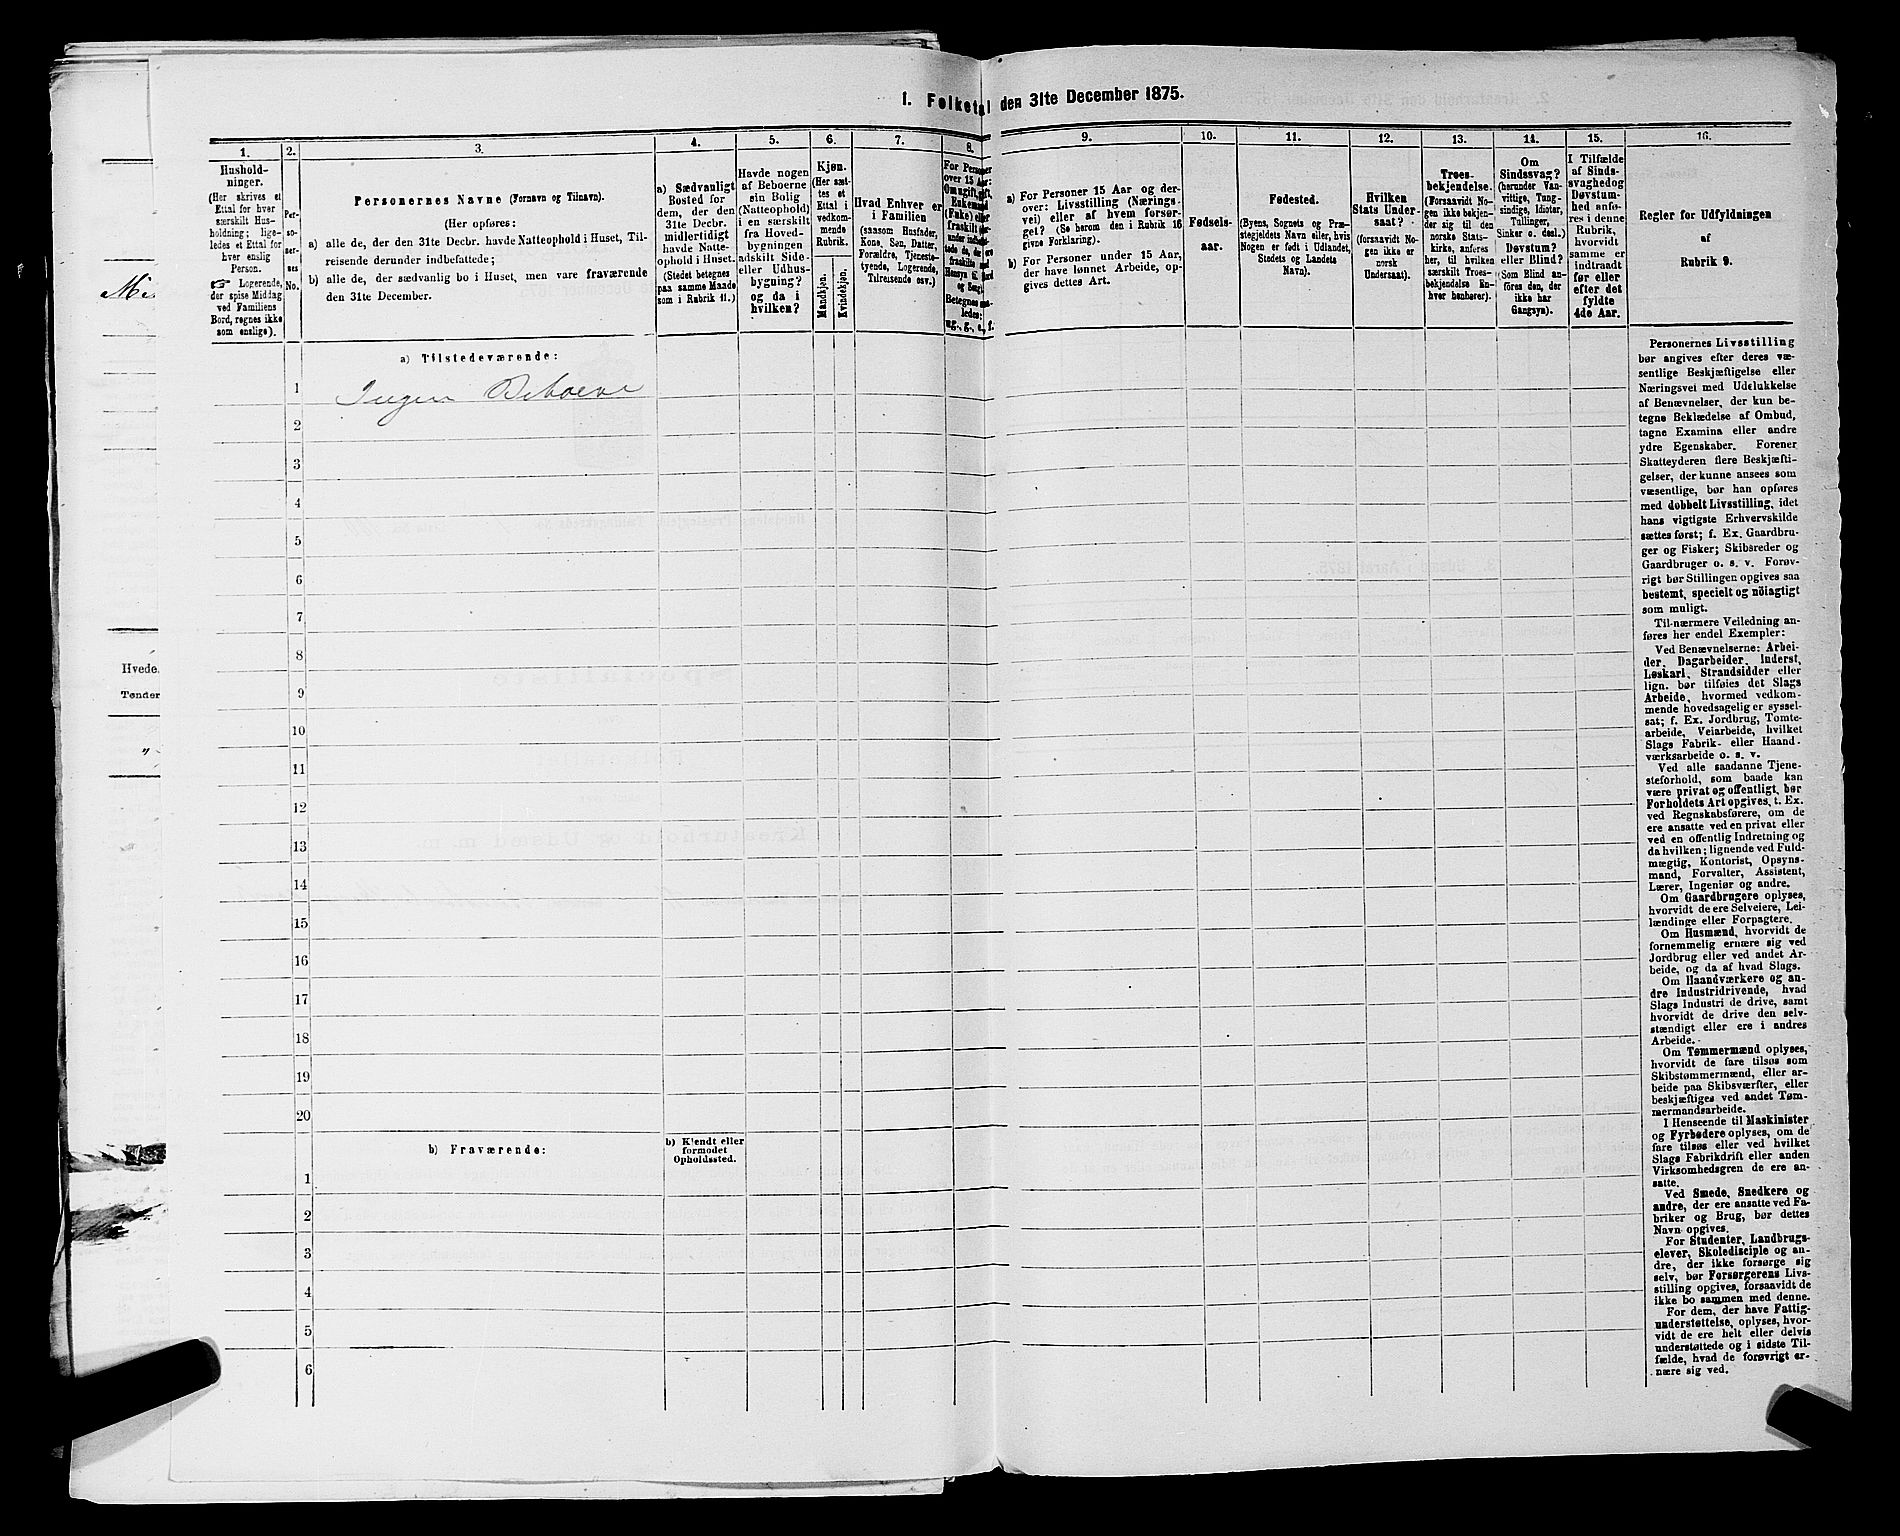 1. Folketal den 31te December 1875.
1.
Hushold-
ninger.
(Her skrives et
Ettal for hver
særskilt Hus-
holdning; lige-
ledes et Ettal for
hver enslig
Person.
☞ Logerende,
der spise Middag
ved Familiens
Bord, regnes ikke
som enslige).
2.
Per-
so-
ner-
nes
No.
3.
Personernes Navne (Fornavn og Tilnavn).
(Her opføres:
a) alle de, der den 31te Decbr. havde Natteophold i Huset, Til-
reisende derunder indbefattede;
b) alle de, der sædvanlig bo i Huset, men vare fraværende
den 31te December.
4.
a) Sædvanligt
Bosted for
dem, der den
31te Decbr.
midlertidigt
havde Natte-
ophold i Huset.
(Stedet betegnes
paa samme Maade
som i Rubrik 11.)
5.
Havde nogen
af Beboerne
sin Bolig
(Natteophold)
i en særskilt
fra Hoved-
bygningen
adskilt Side-
eller Udhus-
bygning?
og da i
hvilken?
6.
Kjøn.
(Her sæt-
tes et
Ettal i
vedkom-
mende
Rubrik.
Mandkjøn.
Kvindekjøn.
7.
Hvad Enhver er
i Familien
(saasom Husfader,
Kone, Søn, Datter,
Forældre, Tjeneste-
tyende, Logerende,
Tilreisende osv.)
8.
For Personer
over 15 Aar:
Betegnes saa-
ledes:
ug., g., e., f.
9.
a) For Personer 15 Aar og der-
over: Livsstilling (Nærings-
vei) eller af hvem forsør-
get? (Se herom den i Rubrik 16
givne Forklaring).
b) For Personer under 15 Aar,
der have lønnet Arbeide, op-
gives dettes Art.
10.
Fødsels-
aar.
11.
Fødested.
(Byens, Sognets og Præ-
stegjeldets Navn eller, hvis
Nogen er født i Udlandet,
Stedets og Landets
Navn).
12.
Hvilken
Stats Under-
saat?
(forsaavidt No-
gen ikke er
norsk
Undersaat).
13.
Troes-
bekjendelse.
(Forsaavidt No-
gen ikke bekjen-
der sig til den
norske Stats-
kirke, anføres
her, til hvilken
særskilt Troes-
bekjendelse En-
hver henhører).
14.
Om
Sindssvag?
(herunder Van-
vittige, Tung-
sindige, Idioter,
Tullinger,
Sinker o. desl.)
Døvstum?
eller Blind?
(Som Blind an-
føres den, der
ikke har
Gangsyn).
15.
I Tilfælde
af Sinds-
svaghed og
Døvstum-
hed anfø-
res i denne
Rubrik,
hvorvidt
samme er
indtraadt
før eller
efter det
fyldte
4de Aar.
16.
Regler for Udfyldningen
af
Rubrik 9.
a) Tilstedeværende:
1 Ingen Beboere
2
3
4
5
6
7
8
9
10
11
12
13
14
15
16
17
18
19
20
b) Fraværende:
b) Kjendt eller
formodet
Opholdssted.
1
2
3
4
5
6
Personernes Livsstilling
bør angives efter deres væ-
sentlige Beskjæftigelse eller
Næringsvei med Udelukkelse
af Benævnelser, der kun be-
tegne Beklædelse af Ombud,
tagne Examina eller andre
ydre Egenskaber. Forener
Skatteyderen flere Beskjæfti-
gelser, der kunne ansees som
væsentlige, bør han opføres
med dobbelt Livsstilling, idet
hans vigtigste Erhvervskilde
sættes først; f. Ex. Gaardbru-
ger og Fisker; Skibsreder og
Gaardbruger o. s. v. Forøv-
rigt bør Stillingen opgives saa
bestemt, specielt og nöiagtigt
som muligt.
Til nærmere Veiledning an-
føres her endel Exempler:
Ved Benævnelserne: Arbei-
der, Dagarbeider, Inderst,
Løskarl, Strandsidder eller
lign. bør tilføies det Slags
Arbeide, hvormed vedkom-
mende hovedsagelig er syssel-
sat; f. Ex. Jordbrug, Tomte-
arbeide, Veiarbeide, hvilket
Slags Fabrik- eller Haand-
værksarbeide o. s. v.
Ved alle saadanne Tjene-
steforhold, som baade kan
være privat og offentligt, bør
Forholdets Art opgives, t. Ex.
ved Regnskabsførere, om de
ere ansatte ved en privat eller
ved en offentlig Indretning og
da hvilken; lignende ved Fuld-
mægtig, Kontorist, Opsyns-
mand, Forvalter, Assistent,
Lærer, Ingeniør og andre.
Om Gaardbrugere oplyses,
hvorvidt de ere Selveiere, Lei-
lændinge eller Forpagtere.
Om Husmænd, hvorvidt de
fornemmelig ernære sig ved
Jordbrug eller ved andet Ar-
beide, og da af hvad Slags.
Om Haandværkere og an-
dre Industridrivende, hvad
Slags Industri de drive, samt
hvorvidt de drive den selv-
stændigt eller ere i andres
Arbeide.
Om Tømmermænd oplyses,
hvorvidt de fare tilsøs som
Skibstømmermænd, eller ar-
beide paa Skibsværfter, eller
beskjæftiges ved andet Tøm-
mermandsarbeide.
I Henseende til Maskinister
og Fyrbødere oplyses, om de
fare tilsøs eller ved hvilket
Slags Fabrikdrift eller anden
Virksomhedsgren de ere an-
satte.
Ved Smede, Snedkere og
andre, der ere ansatte ved Fa-
briker og Brug, bør dettes
Navn opgives.
For Studenter, Landbrugs-
elever, Skoledisciple og an-
dre, der ikke forsørge sig
selv, bør Forsørgerens Livs-
stilling opgives, forsaavidt de
ikke bo sammen med denne.
For dem, der have Fattig-
understøttelse, oplyses, hvor-
vidt de ere helt eller delvis
understøttede og i sidste Til-
fælde, hvad de forøvrigt er-
nære sig ved.
Hvede.
Tønder
„